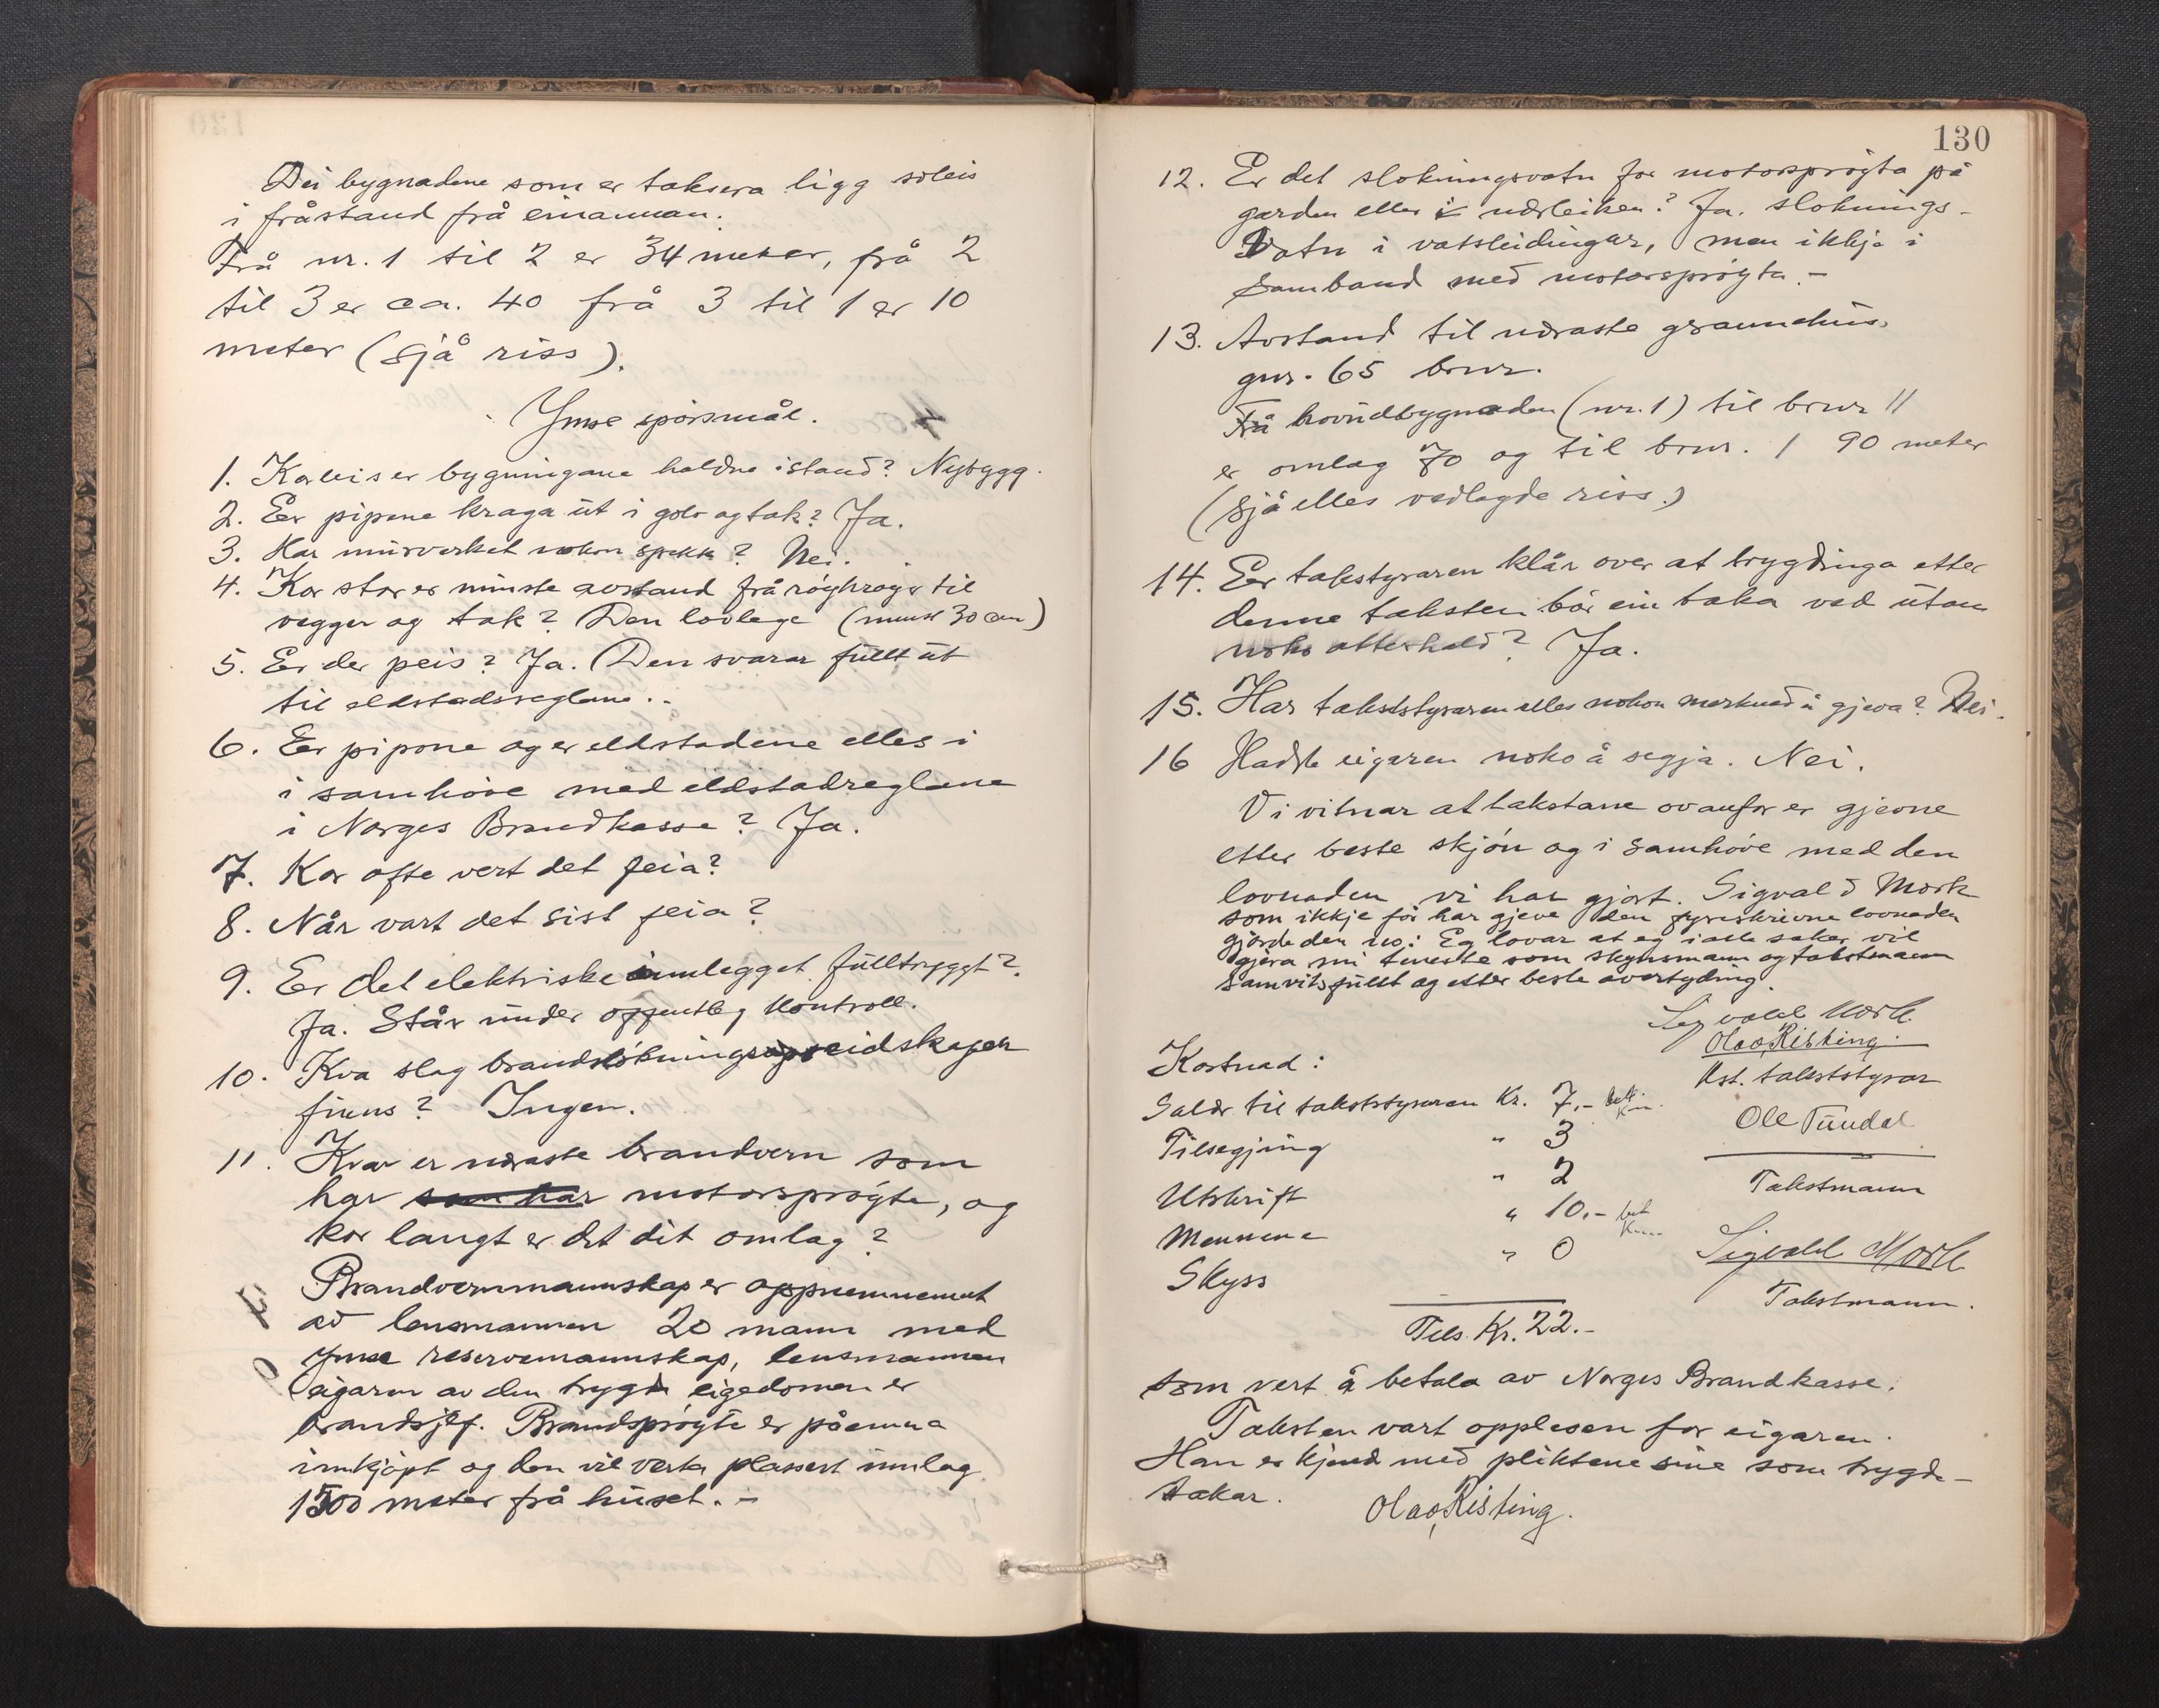 Dei bygnadene som er taksera ligg soleis
i fråstand frå einannan.
Frå nr. 1 til 2 er 34 meter, frå 2
til 3 er ca. 40 frå 3 til 1 er 10
meter (sjå riss).
Ymse spørsmål.
1. Korleis er bygningane haldne istand? Nybygg.
2. Er pipene kraga ut i golv og tak? Ja.
3. Har murverket nokon sprekk? Nei.
4. Kor stor er minste avstand frå røykrøyr til
vegger og tak? Den lovlege (minst 30 cm)
5. Er der peis? Ja. Den svarar fullt ut
til eldstadsreglane.
6. Er pipone og er eldstadene elles i
i samhøve med eldstadreglane
i Norges Brandkasse? Ja.
7. Kor ofte vert det feia?
8. Når vart det sist feia?
9. Er det elektriske innlegget fulltryggt?
Ja. Står under offentleg kontroll.
10. Kva slag brandsløkningsreidskaper
finns? Ingen.
11. Kvar er næraste brandvern som
har som har motorsprøyte, og
kor langt er det dit omlag?
Brandvernmannskap er oppnemnemnt
av lensmannen 20 mann med
ymse reservemannskap, lensmannen
eigaren av den trygda eigedomen er
brandsjef. Brandsprøyte er påemna
innkjøpt og den vil verta plassert innlag
1500 meter frå huset. -
130
12. Er det slokningsvatn for motorsprøyta på
garden eller i nærleiken? Ja. sloknings-
Vatn i vatsleidingar, men ikkje i
Samband med motorsprøyta. -
13. Avstand til næraste grannehus.
gnr. 65 brnr.
Frå hovudbygnaden (nr. 1) til brnr 11
er omlag 70 og til brnr. 1 90 meter
(sjå elles vedlagde riss.)
14. Er takstyraren klår over at trygdinga etter
denne taksten bør ein taka ved utan
noko atterhald? Ja.
15. Har takststyraren elles nokon merknad å gjeva? Nei.
16 Hadde eigaren noko å segja. Nei.
Vi vitnar at takstane ovanfor er gjevne
etter beste skjøn og i samhøve med den
lovnaden vi har gjort. Sigvald Mork
som ikkje før har gjeve den fyreskrivne lovnaden
gjorde den no: Eg lovar at eg i alle saker vil
gjera mi teneste som skynsmann og takstmann
samvitsfullt og etter beste overtyding.
Sigvald Mork
Olav Risting.
Kst. takststyrar
Kostnad:
Salær til takststyraren Kr. 7.-
Tilsegjing " 3
Utskrift " 2
Mennene " 10.-
Skyss " 0
Ole Tundal
Takstmann
Sigvald Mork
Takstmann.
Tils. Kr. 22.-
som vert å betala av Norges Brandkasse.
Taksten vart opplesen for eigaren.
Han er kjend med pliktene sine som trygde-
takar.
Olav Risting.